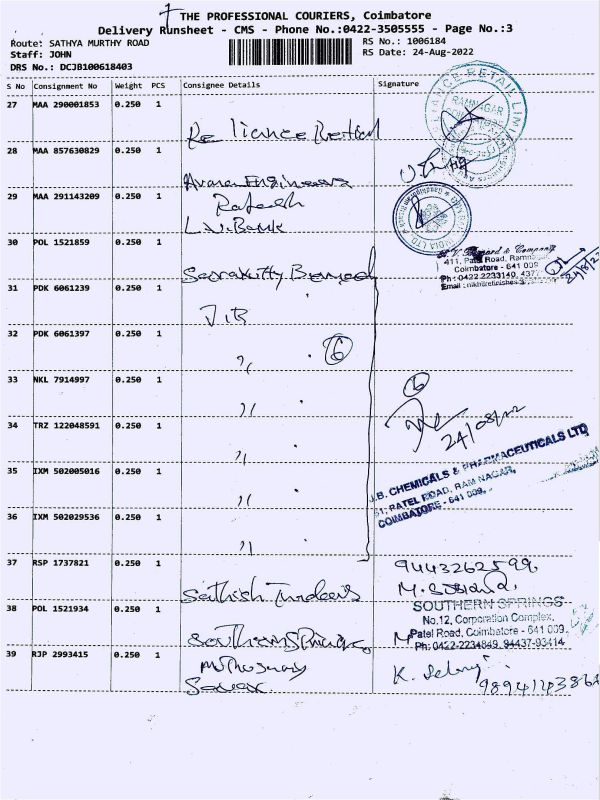 THE PROFESSIONAL COURIERS, Coimbatore
Delivery Runsheet - CMS - Phone No.:0422-3505555 - Page No.:3
Route: SATHYA MURTHY ROAD RS No.: 1006184
Staff: JOHN RS Date: 24-Aug-2022
DRS No.: DCJB100618403
S No Consignment No Weight PCS Consignee Details Signature
27 MAA 290001853 0.250 1
Reliance Retail
RELIANCE RETAIL LIMITED
RAMNAGAR
28 MAA 857630829 0.250 1
Engineers
29 MAA 291143209 0.250 1
Rakesh
L.V. Bank
30 POL 1521859 0.250 1
& Company
411, Patel Road, Ramnagar,
Coimbatore - 641 009
Ph: 0422 2233140, 437
Email :
24/8/22
31 PDK 6061239 0.250 1
32 PDK 6061397 0.250 1
6
33 NKL 7914997 0.250 1
6
34 TRZ 122048591 0.250 1
24/08/22
35 IXM 502005016 0.250 1
J.B. CHEMICALS & PHARMACEUTICALS LTD
51, PATEL ROAD, RAM NAGAR,
COIMBATORE - 641 009.
36 IXM 502029536 0.250 1
37 RSP 1737821 0.250 1
9443262599
Sathish
38 POL 1521934 0.250 1
SOUTHERN SPRINGS
No.12, Corporation Complex,
Patel Road, Coimbatore - 641 009.
Southern Springs
Ph: 0422-2234849, 94437-93414
39 RJP 2993415 0.250 1
Muthusamy
K. Selvy
9894143862